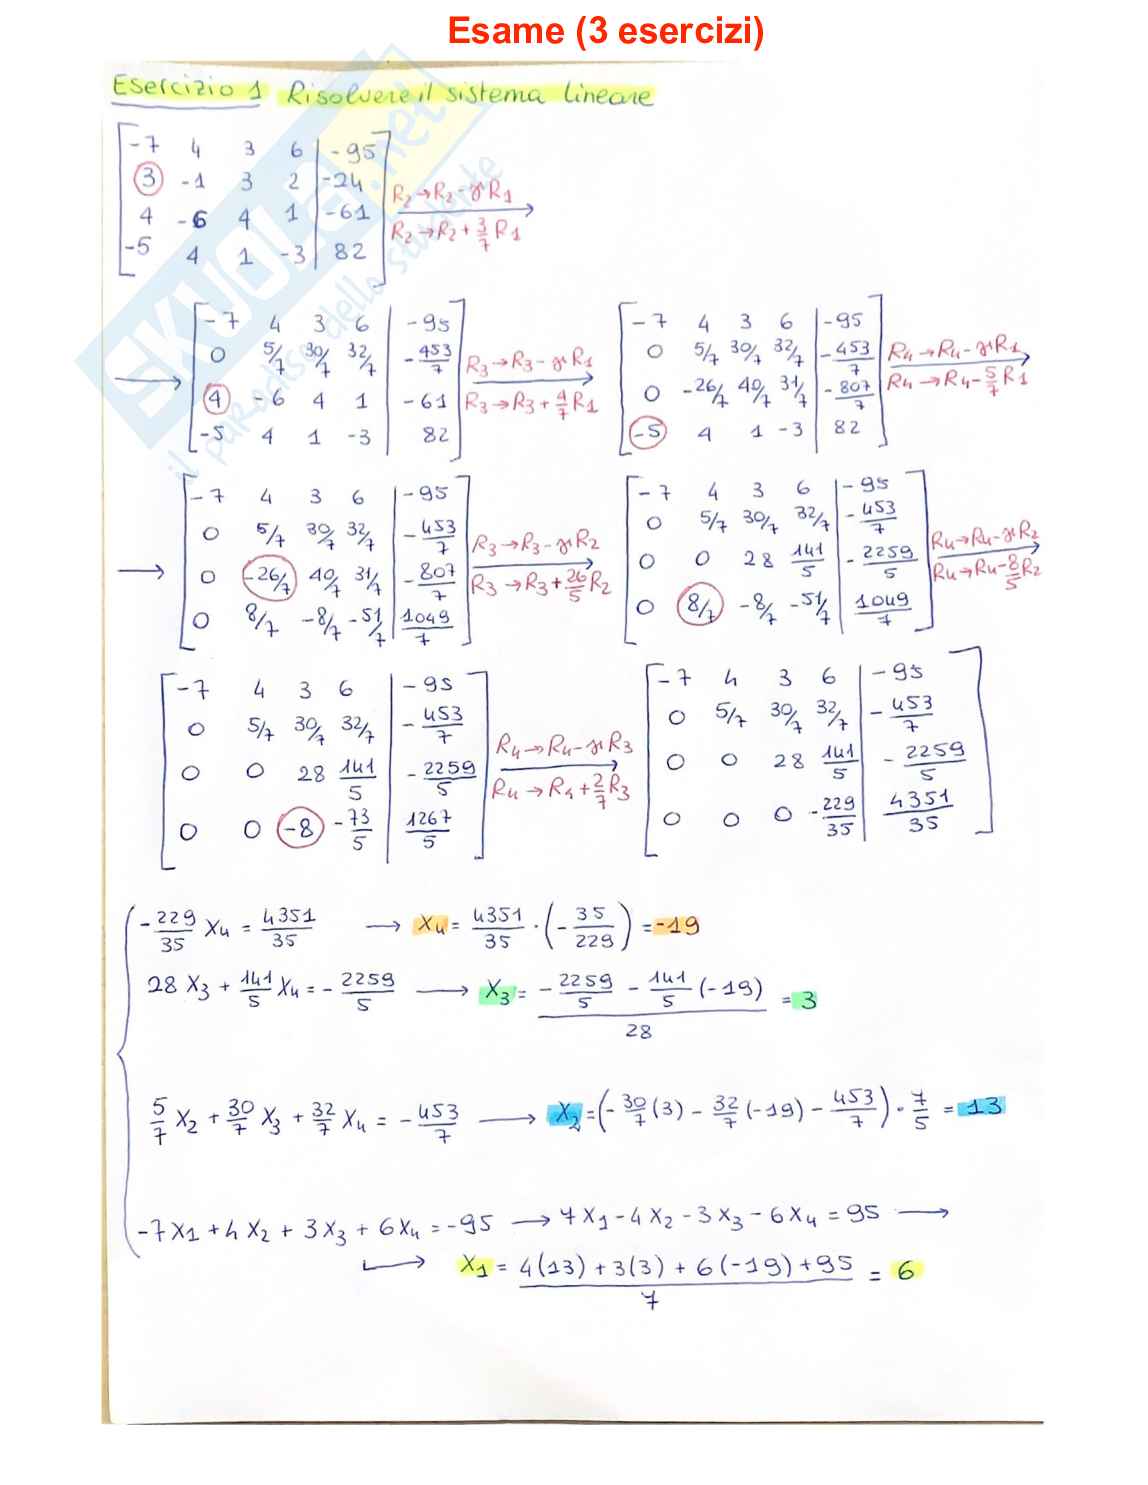 Esame (3 esercizi)
Esercizio 1 Risolvere il sistema lineare
-7 4 3 6 | -95
3 -1 3 2 | -24
4 -6 4 1 | -61
-5 4 1 -3 | 82
R₂→R₂-γR₁
R₂→R₂+3/7R₁
-7 4 3 6 | -95
0 5/7 30/7 32/7 | -453/7
4 -6 4 1 | -61
-5 4 1 -3 | 82
R₃→R₃-γR₁
R₃→R₃+4/7R₁
-7 4 3 6 | -95
0 5/7 30/7 32/7 | -453/7
0 -26/7 40/7 31/7 | -807/7
-5 4 1 -3 | 82
R₄→R₄-γR₁
R₄→R₄-5/7R₁
-7 4 3 6 | -95
0 5/7 30/7 32/7 | -453/7
0 -26/7 40/7 31/7 | -807/7
0 8/7 -8/7 -51/7 | 1049/7
R₃→R₃-γR₂
R₃→R₃+26/5R₂
-7 4 3 6 | -95
0 5/7 30/7 32/7 | -453/7
0 0 28 141/5 | -2259/5
0 8/7 -8/7 -51/7 | 1049/7
R₄→R₄-γR₂
R₄→R₄-8/5R₂
-7 4 3 6 | -95
0 5/7 30/7 32/7 | -453/7
0 0 28 141/5 | -2259/5
0 0 -8 -73/5 | 1267/5
R₄→R₄-γR₃
R₄→R₄+2/7R₃
-7 4 3 6 | -95
0 5/7 30/7 32/7 | -453/7
0 0 28 141/5 | -2259/5
0 0 0 -229/35 | 4351/35
-229/35 X₄ = 4351/35 → X₄ = 4351/35 · (-35/229) = -19
28 X₃ + 141/5 X₄ = -2259/5 → X₃ = (-2259/5 - 141/5 (-19))/28 = 3
5/7 X₂ + 30/7 X₃ + 32/7 X₄ = -453/7 → X₂ = (-30/7 (3) - 32/7 (-19) - 453/7) · 7/5 = 13
-7X₁ + 4X₂ + 3X₃ + 6X₄ = -95 → 7X₁ - 4X₂ - 3X₃ - 6X₄ = 95 →
→ X₁ = (4(13) + 3(3) + 6(-19) + 95)/7 = 6
SKUOLA.net
il paradiso dello studente